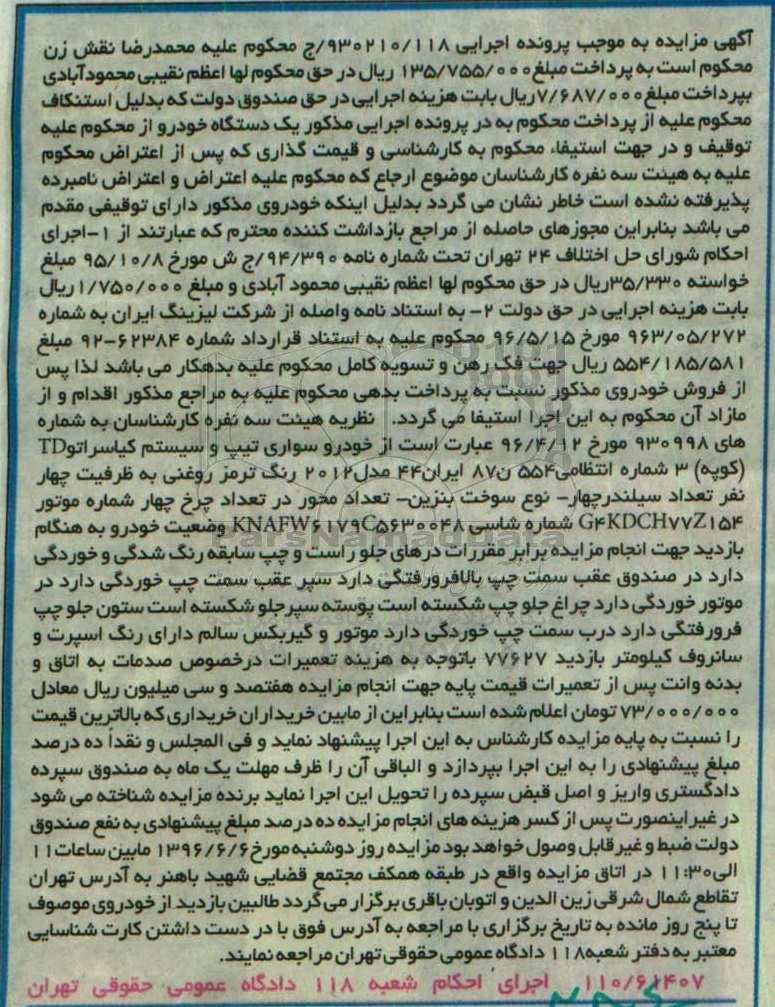 آگهی مزایده به موجب پرونده اجرایی ۹۳۰۲۱۰/۱۱۸/ج محکوم علیه محمدرضا نقش زن
محکوم است به پرداخت مبلغ ۱۳۵/۷۵۵/۰۰۰ ریال در حق محکوم لها اعظم نقیبی محمودآبادی
بپرداخت مبلغ ۷/۶۸۷/۰۰۰ ریال بابت هزینه اجرایی در حق صندوق دولت که بدلیل استنکاف
محکوم علیه از پرداخت محکوم به در پرونده اجرایی مذکور یک دستگاه خودرو از محکوم علیه
توقیف و در جهت استیفاء محکوم به کارشناسی و قیمت گذاری که پس از اعتراض محکوم
علیه به هیئت سه نفره کارشناسان موضوع ارجاع که محکوم علیه اعتراض و اعتراض نامبرده
پذیرفته نشده است خاطر نشان می گردد بدلیل اینکه خودروی مذکور دارای توقیفی مقدم
می باشد بنابراین مجوزهای حاصله از مراجع بازداشت کننده محترم که عبارتند از ۱-اجرای
احکام شورای حل اختلاف ۲۴ تهران تحت شماره نامه ۹۴/۳۹۰/ج ش مورخ ۹۵/۱۰/۸ مبلغ
خواسته ۳۵/۳۳۰ریال در حق محکوم لها اعظم نقیبی محمود آبادی و مبلغ ۱/۷۵۰/۰۰۰ ریال
بابت هزینه اجرایی در حق دولت ۲- به استناد نامه واصله از شرکت لیزینگ ایران به شماره
۹۶۳/۰۵/۲۷۲ مورخ ۹۶/۵/۱۵ محکوم علیه به استناد قرارداد شماره ۶۲۳۸۴-۹۲ مبلغ
۵۵۴/۱۸۵/۵۸۱ ریال جهت فک رهن و تسویه کامل محکوم علیه بدهکار می باشد لذا پس
از فروش خودروی مذکور نسبت به پرداخت بدهی محکوم علیه به مراجع مذکور اقدام و از
مازاد آن محکوم به این اجرا استیفا می گردد. نظریه هیئت سه نفره کارشناسان به شماره
های ۹۳۰۹۹۸ مورخ ۹۶/۴/۱۲ عبارت است از خودرو سواری تیپ و سیستم کیاسراتوTD
(کوپه) ۳ شماره انتظامی۵۵۴ ن۸۷ ایران۴۴ مدل۲۰۱۲ رنگ ترمز روغنی به ظرفیت چهار
نفر تعداد سیلندرچهار- نوع سوخت بنزین- تعداد محور در تعداد چرخ چهار شماره موتور
G۴KDCH۷۷Z۱۵۴ شماره شاسی KNAFW۶۱۷۹C۵۶۳۰۰۴۸ وضعیت خودرو به هنگام
بازدید جهت انجام مزایده برابر مقررات درهای جلو راست و چپ سابقه رنگ شدگی و خوردگی
دارد در صندوق عقب سمت چپ بالافرورفتگی دارد سپر عقب سمت چپ خوردگی دارد در
موتور خوردگی دارد چراغ جلو چپ شکسته است پوسته سپرجلو شکسته است ستون جلو چپ
فرورفتگی دارد درب سمت چپ خوردگی دارد موتور و گیربکس سالم دارای رنگ اسپرت و
سانروف کیلومتر بازدید ۷۷۶۲۷ باتوجه به هزینه تعمیرات درخصوص صدمات به اتاق و
بدنه وانت پس از تعمیرات قیمت پایه جهت انجام مزایده هفتصد و سی میلیون ریال معادل
۷۳/۰۰۰/۰۰۰ تومان اعلام شده است بنابراین از مابین خریداران خریداری که بالاترین قیمت
را نسبت به پایه مزایده کارشناس به این اجرا پیشنهاد نماید و فی المجلس و نقداً ده درصد
مبلغ پیشنهادی را به این اجرا بپردازد و الباقی آن را ظرف مهلت یک ماه به صندوق سپرده
دادگستری واریز و اصل قبض سپرده را تحویل این اجرا نماید برنده مزایده شناخته می شود
در غیر اینصورت پس از کسر هزینه های انجام مزایده ده درصد مبلغ پیشنهادی به نفع صندوق
دولت ضبط و غیر قابل وصول خواهد بود مزایده روز دوشنبه مورخ ۱۳۹۶/۶/۶ مابین ساعات۱۱
الی۱۱:۳۰ در اتاق مزایده واقع در طبقه همکف مجتمع قضایی شهید باهنر به آدرس تهران
تقاطع شمال شرقی زین الدین و اتوبان باقری برگزار می گردد طالبین بازدید از خودروی موصوف
تا پنج روز مانده به تاریخ برگزاری با مراجعه به آدرس فوق با در دست داشتن کارت شناسایی
معتبر به دفتر شعبه۱۱۸ دادگاه عمومی حقوقی تهران مراجعه نمایند.
۱۱۰/۶۱۴۰۷ اجرای احکام شعبه ۱۱۸ دادگاه عمومی حقوقی تهران
ParsNamadData